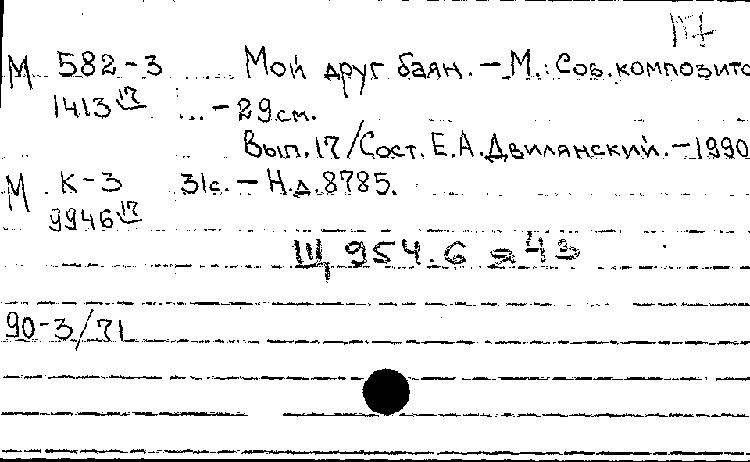 М 582-3 Мой друг баян. – М.: Сов. композито
1413 17 ... – 29 см.
Вып. 17 / Сост. Е.А. Двилянский. – 1990
М К-3 31 с. – Н.д. 8785.
9946 17
Щ 954.6 я 43
90-3/71